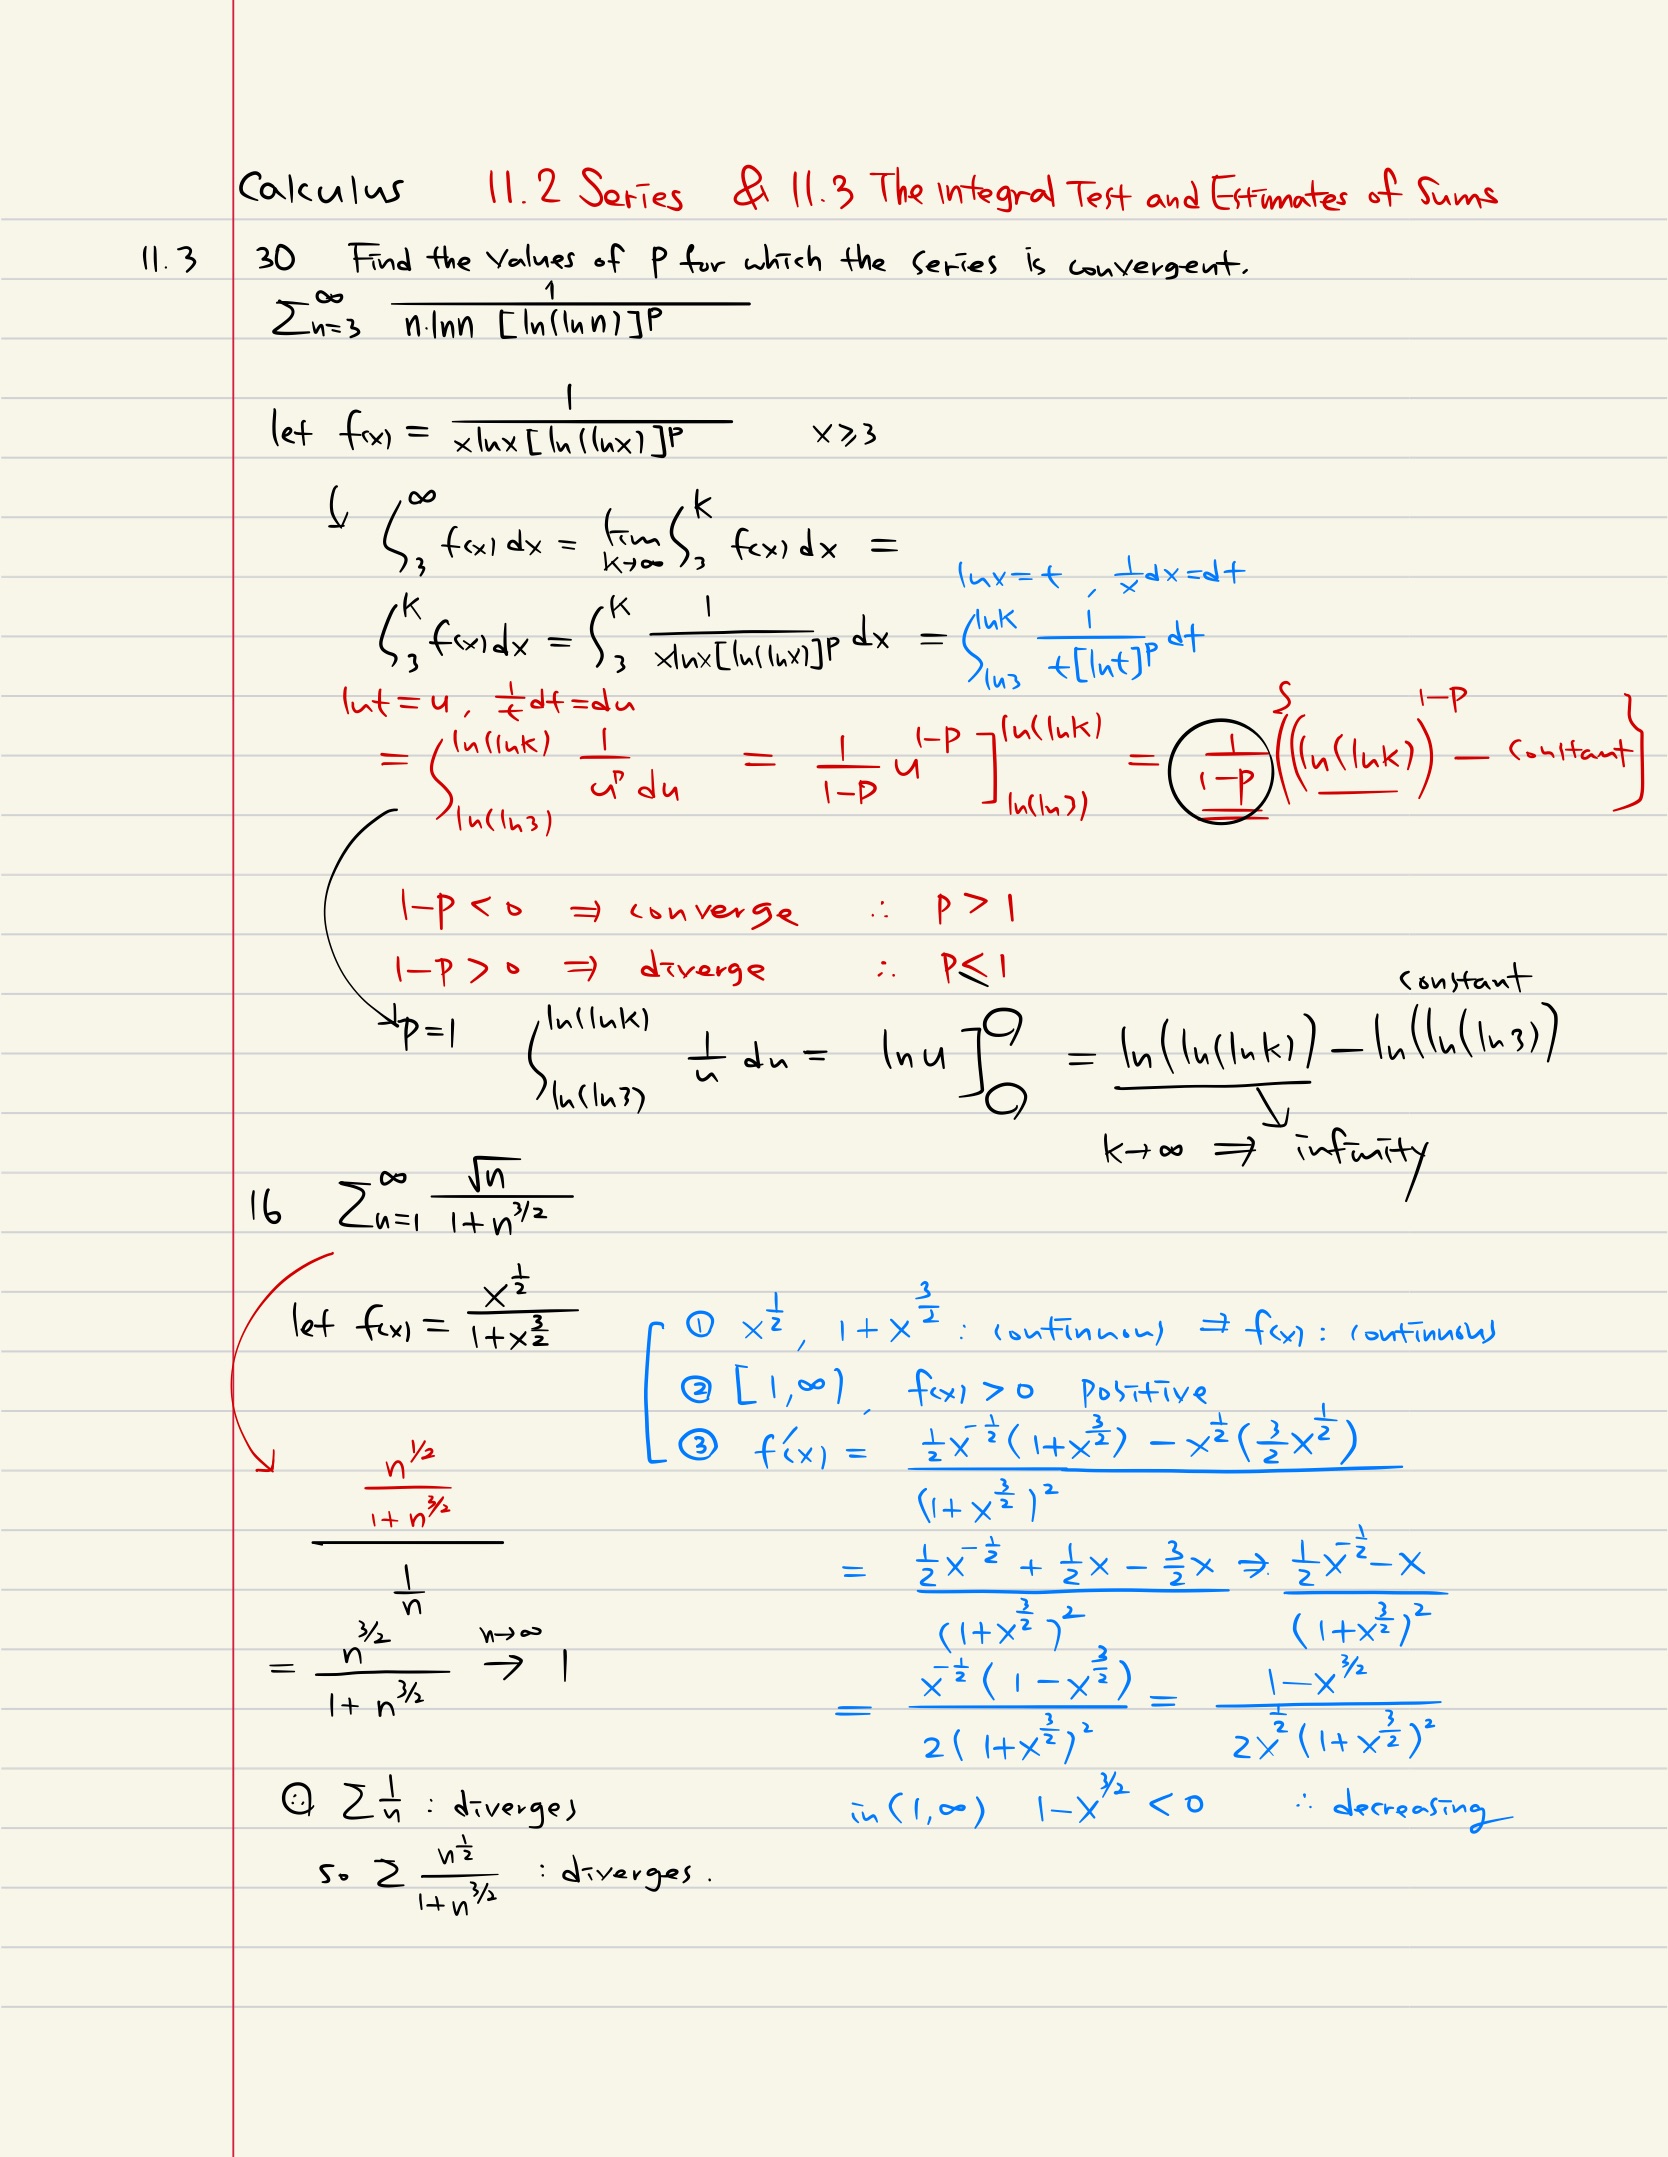 Calculus 11.2 Series & 11.3 The Integral Test and Estimates of Sums
11.3 30 Find the values of P for which the series is convergent.
∑_{n=3}^{∞} 1/(n·ln n [ln(ln n)]^P)
let f(x) = 1/(x ln x [ln(ln x)]^P) x ≥ 3
↓ ∫_3^∞ f(x) dx = lim_{k→∞} ∫_3^k f(x) dx =
ln x = t , 1/x dx = dt
∫_3^k f(x) dx = ∫_3^k 1/(x ln x [ln(ln x)]^P) dx = ∫_{ln 3}^{ln k} 1/(t [ln t]^P) dt
ln t = u , 1/t dt = du
= ∫_{ln(ln 3)}^{ln(ln k)} 1/u^P du = 1/(1-P) u^{1-P} ]_{ln(ln 3)}^{ln(ln k)} = 1/(1-P) {(ln(ln k))^{1-P} - constant}
1-P < 0 ⇒ converge ∴ P > 1
1-P > 0 ⇒ diverge ∴ P ≤ 1
P = 1 ∫_{ln(ln 3)}^{ln(ln k)} 1/u du = ln u ] = ln(ln(ln k)) - ln(ln(ln 3))
constant
k → ∞ ⇒ infinity
16 ∑_{n=1}^{∞} √n/(1+n^{3/2})
let f(x) = x^{1/2}/(1+x^{3/2})
① x^{1/2}, 1+x^{3/2} : continuous ⇒ f(x) : continuous
② [1,∞), f(x) > 0 positive
③ f'(x) = (1/2 x^{-1/2}(1+x^{3/2}) - x^{1/2}(3/2 x^{1/2}))/(1+x^{3/2})^2
= (1/2 x^{-1/2} + 1/2 x - 3/2 x)/(1+x^{3/2})^2 ⇒ (1/2 x^{-1/2} - x)/(1+x^{3/2})^2
= x^{-1/2}(1-x^{3/2})/(2(1+x^{3/2})^2) = (1-x^{3/2})/(2x^{1/2}(1+x^{3/2})^2)
in (1,∞) 1-x^{3/2} < 0 ∴ decreasing
(n^{1/2}/(1+n^{3/2}))/(1/n)
= n^{3/2}/(1+n^{3/2}) →^{n→∞} 1
∵ ∑ 1/n : diverges
so ∑ n^{1/2}/(1+n^{3/2}) : diverges.